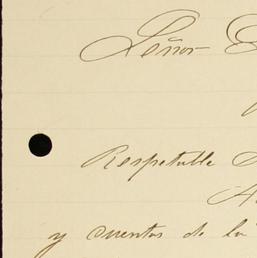 Señor
Respetable
y cuentos de la